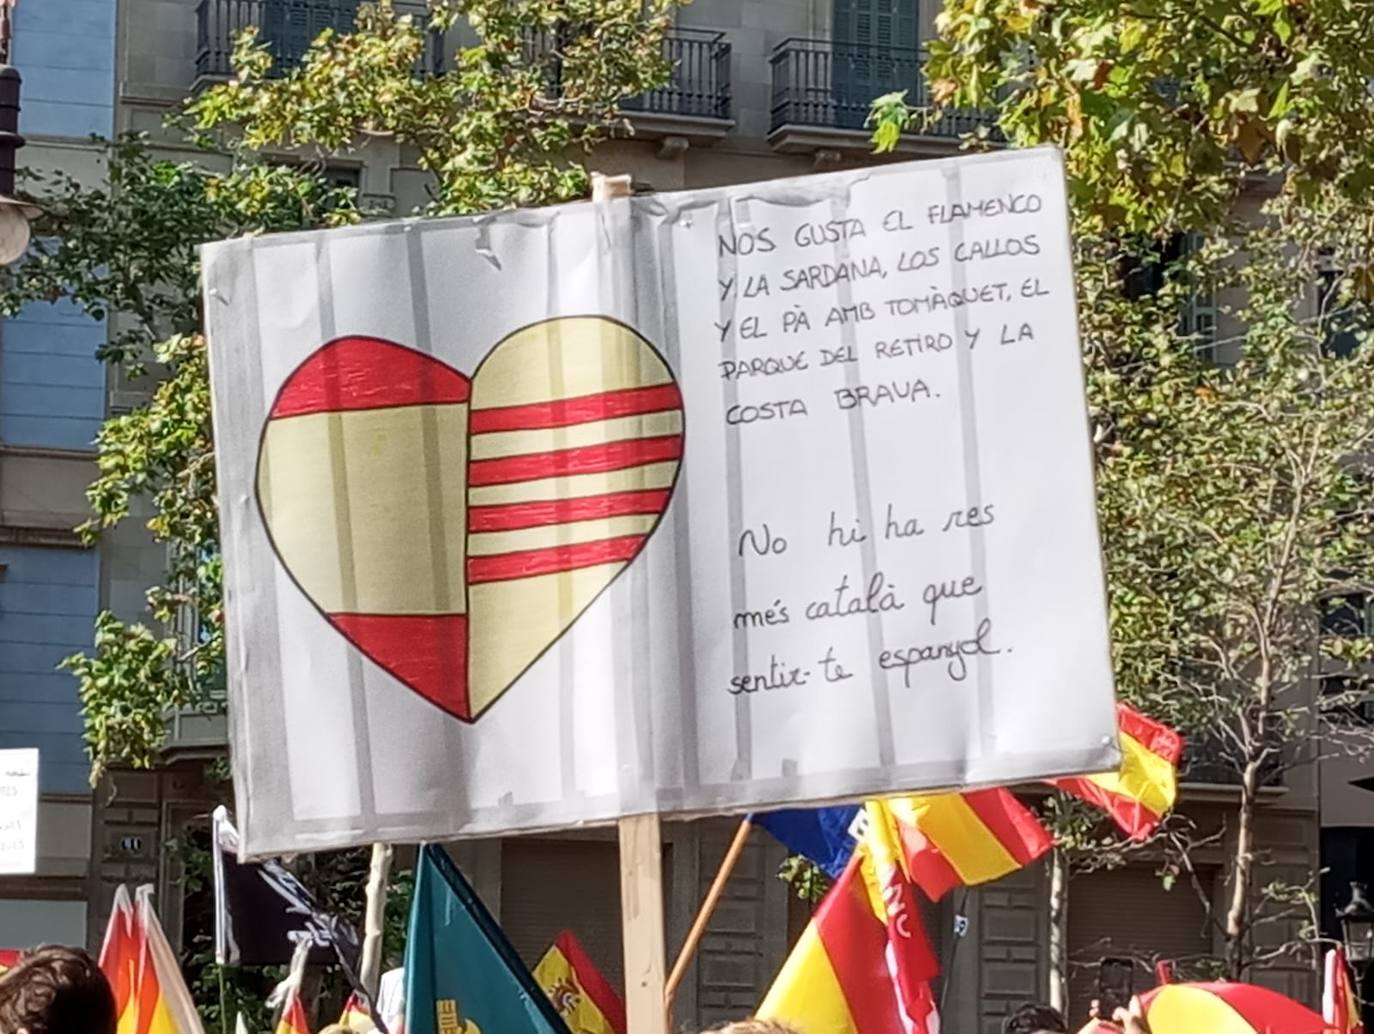 NOS GUSTA EL FLAMENCO
Y LA SARDANA, LOS CALLOS
Y EL PÀ AMB TOMÀQUET, EL
PARQUE DEL RETIRO Y LA
COSTA BRAVA.
No hi ha res
més català que
sentir-te espanyol.